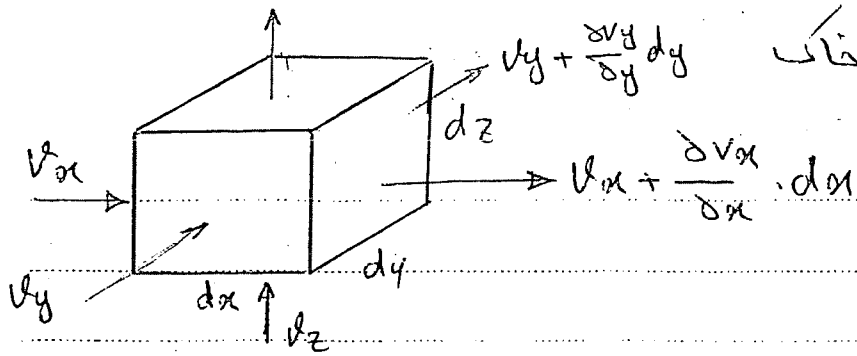 Vy + ∂Vy/∂y dy خاک
dz
Vx
Vx + ∂Vx/∂x . dx
dy
Vy dx
Vz